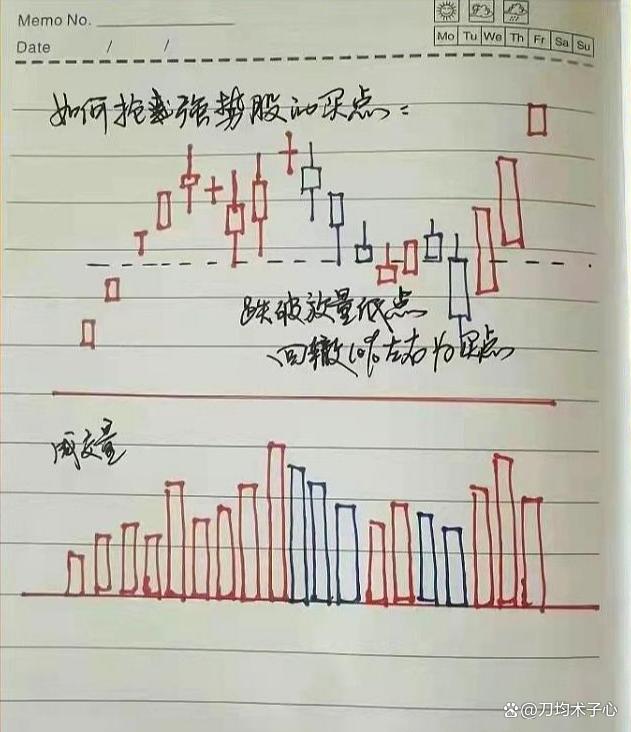 Memo No.
Date / /
Mo Tu We Th Fr Sa Su
如何抢到强势股的买点：
跌破放量低点
回撤10%左右为买点
成交量
@刀均术子心